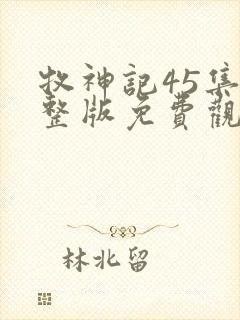 牧神記45集
整版免費觀
林北留